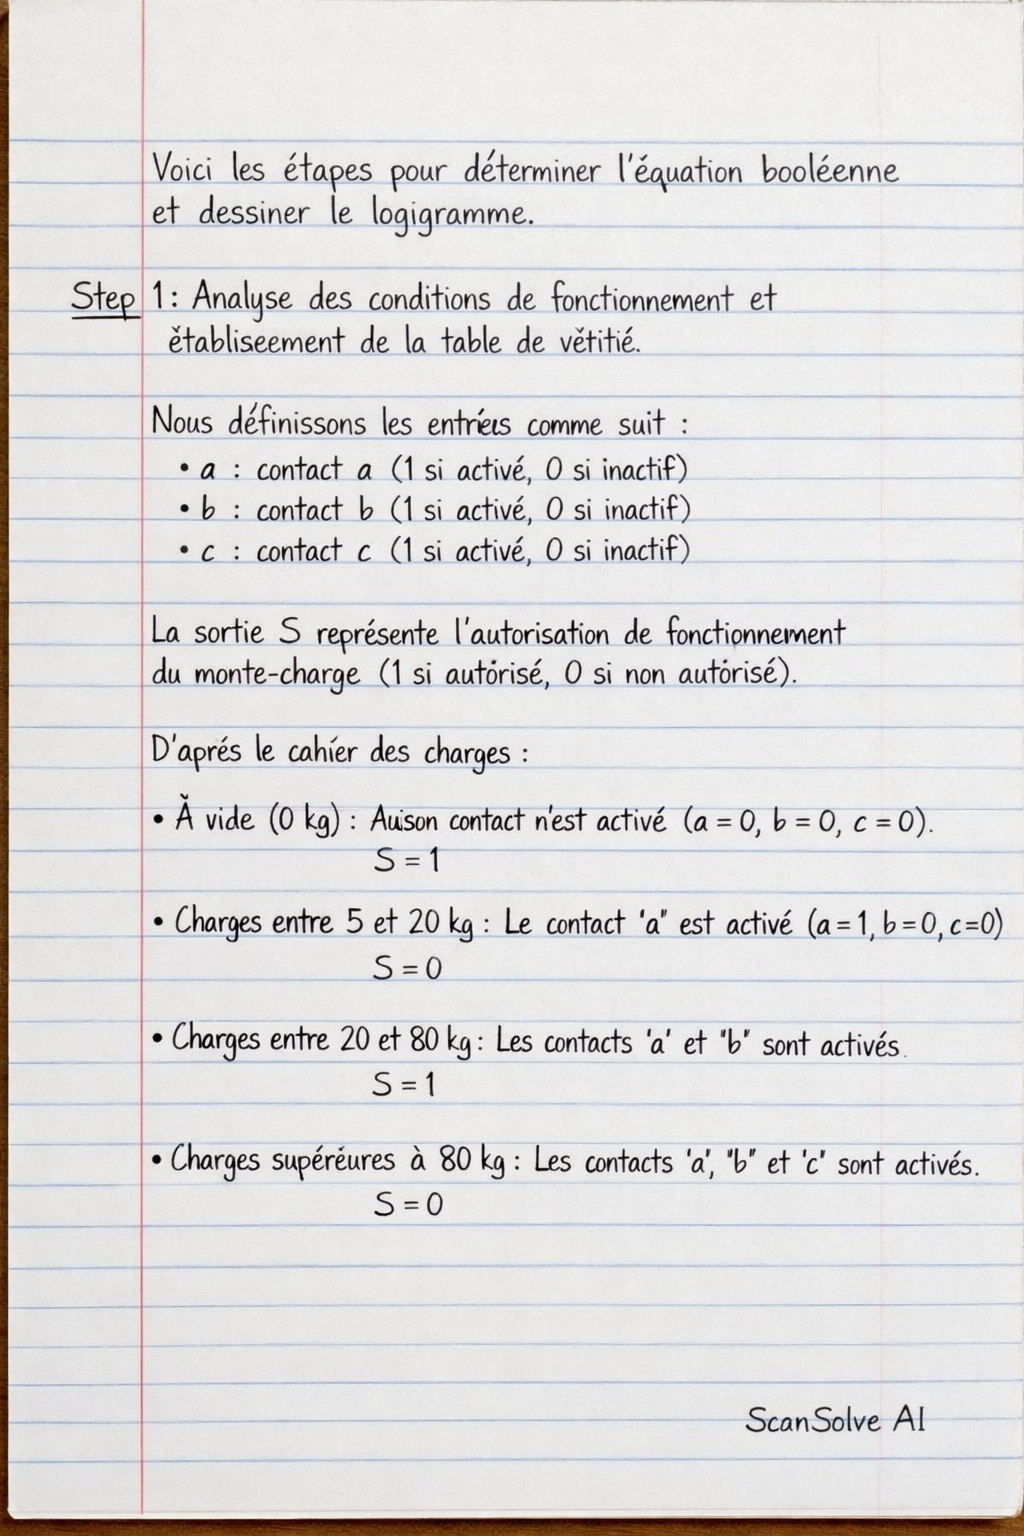 Voici les étapes pour déterminer l'équation booléenne
et dessiner le logigramme.
Step 1: Analyse des conditions de fonctionnement et
ětabliseement de la table de větitié.
Nous définissons les entriées comme suit :
• a : contact a (1 si activé, 0 si inactif)
• b : contact b (1 si activé, 0 si inactif)
• c : contact c (1 si activé, 0 si inactif)
La sortie S représente l'autorisation de fonctionnement
du monte-charge (1 si autórisé, 0 si non autórisé).
D'aprés le cahíer des charges :
• Ǎ vide (0 kg) : Auison contact n'est activé (a = 0, b = 0, c = 0).
S = 1
• Charges entre 5 et 20 kg : Le contact 'a" est activé (a = 1, b = 0, c=0)
S = 0
• Charges entre 20 et 80 kg : Les contacts 'a' et "b" sont activés.
S = 1
• Charges supéréures à 80 kg : Les contacts 'a', "b" et 'c' sont activés.
S = 0
ScanSolve AI